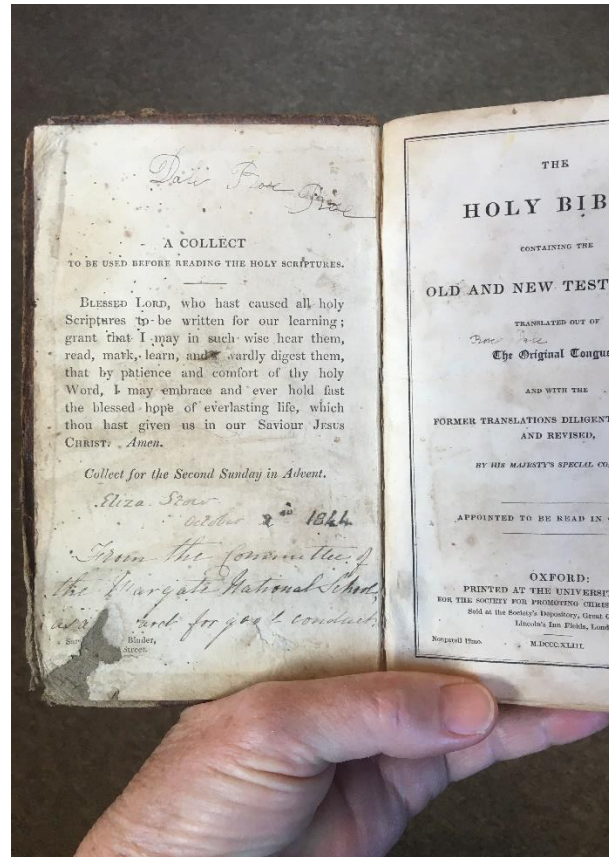 A COLLECT
TO BE USED BEFORE READING THE HOLY SCRIPTURES.
BLESSED LORD, who hast caused all holy
Scriptures to be written for our learning;
grant that I may in such wise hear them,
read, mark, learn, and wardly digest them,
that by patience and comfort of thy holy
Word, I may embrace and ever hold fast
the blessed hope of everlasting life, which
thou hast given us in our Saviour JESUS
CHRIST. Amen.
Collect for the Second Sunday in Advent.
Eliza
October 1844
From the Committee of
the Margate National School,
as a ard for good conduct
Binder,
Street.
THE
HOLY BIB
CONTAINING THE
OLD AND NEW TEST
TRANSLATED OUT OF
The Original Tongu
AND WITH THE
FORMER TRANSLATIONS DILIGENT
AND REVISED,
BY HIS MAJESTY'S SPECIAL CO
APPOINTED TO BE READ IN
OXFORD:
PRINTED AT THE UNIVERSIT
FOR THE SOCIETY FOR PROMOTING CHRIS
Sold at the Society's Depository, Great
Lincoln's Inn Fields, Lond
Nonpareil 12mo.
M.DCCC.XLIII.